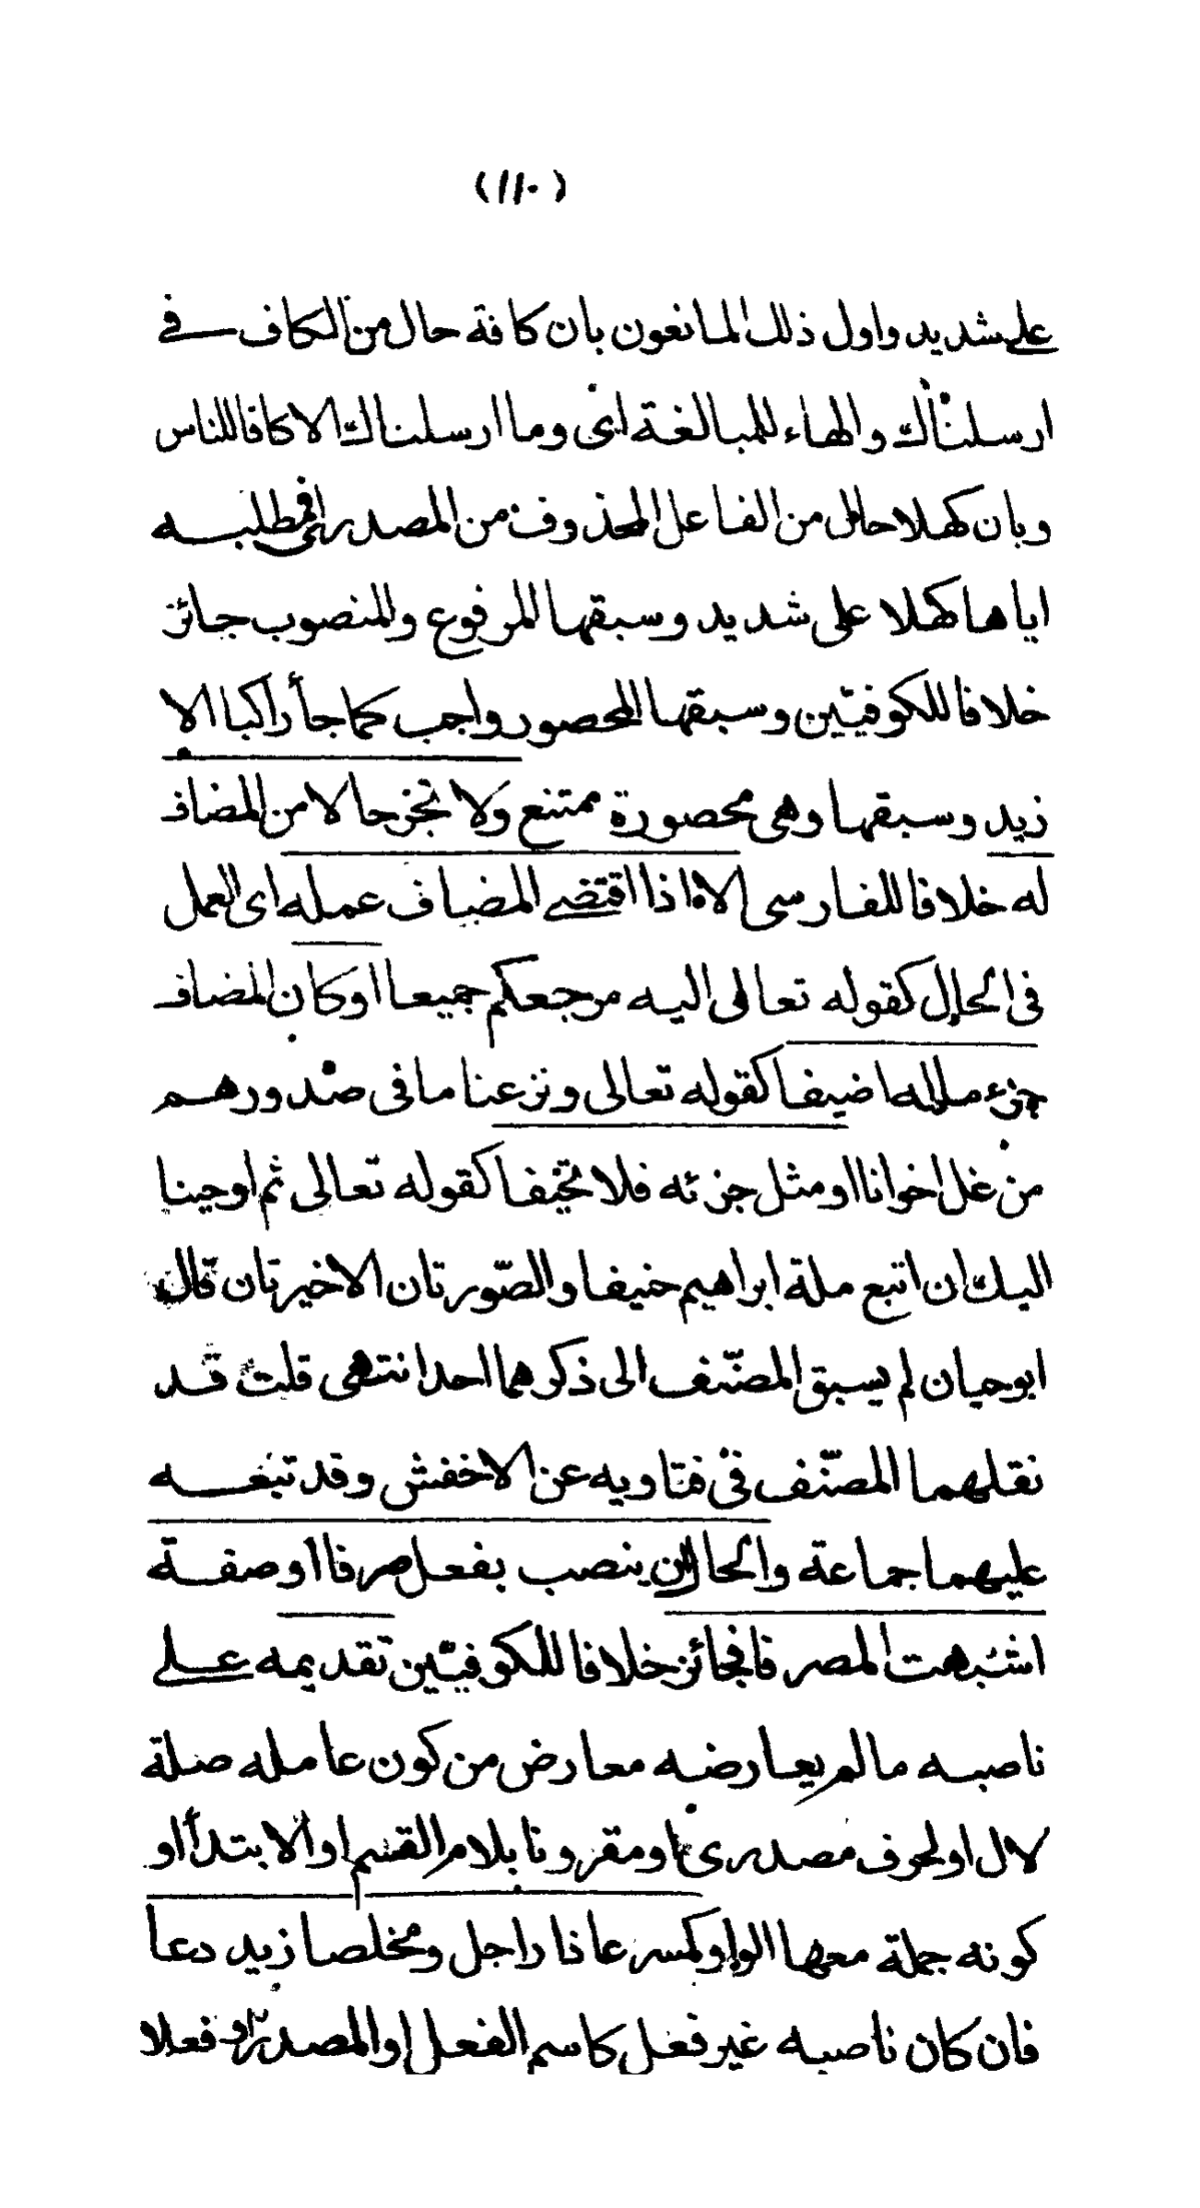 (١١٠)
على شديد واول ذلك المانعون بان كافة حال من الكاف فى
ارسلناك والهاء للمبالغة اى وما ارسلناك الا كافا للناس
وبان كهلا حال من الفاعل المحذوف من المصدر اى فمطلبه
اياها كهلا على شديد وسبقها المرفوع والمنصوب جائز
خلافا للكوفيّين وسبقها المحصور واجب كما جاء راكبا الا
زيد وسبقها وهى محصورة ممتنع ولا تجز حالا من المضاف
له خلافا للفارسى الا اذا اقتضى المضاف عمله اى العمل
فى الحال كقوله تعالى اليه مرجعكم جميعا او كان المضاف
جزء ماله اضيفا كقوله تعالى ونزعنا ما فى صدورهم
من غل اخوانا او مثل جزئه فلا تحيفا كقوله تعالى ثم اوحينا
اليك ان اتبع ملة ابراهيم حنيفا والصّورتان الاخيرتان قال
ابو حيان لم يسبق المصنّف الى ذكرهما احد انتهى قلت قد
نقلهما المصنّف فى فتاويه عن الاخفش وقد تبعه
عليهما جماعة والحال ان ينصب بفعل صرفا او صفة
اشبهت المصرفا فجائز خلافا للكوفيّين تقديمه على
ناصبه ما لم يعارضه معارض من كون عامله صلة
لال او لحرف مصدرى او مقرونا بلام القسم او الابتداء او
كونه جملة معها الواو كمسرعا ذا راحل ومخلصا زيد دعا
فان كان ناصبه غير فعل كاسم الفعل او المصدر او فعلا